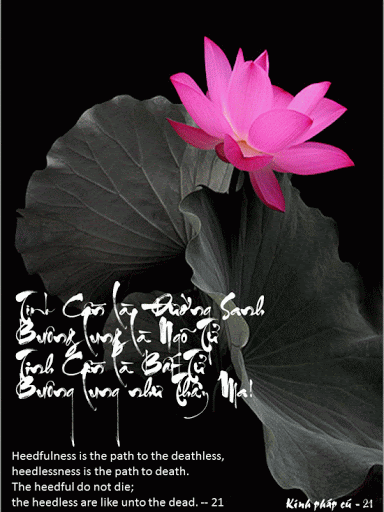 Tinh Cần là Đường Sanh
Buông lung là Ngõ Tử
Tinh Cần là Bất Tử
Buông lung như thây Ma!
Heedfulness is the path to the deathless,
heedlessness is the path to death.
The heedful do not die;
the heedless are like unto the dead. -- 21
Kinh pháp cú - 21